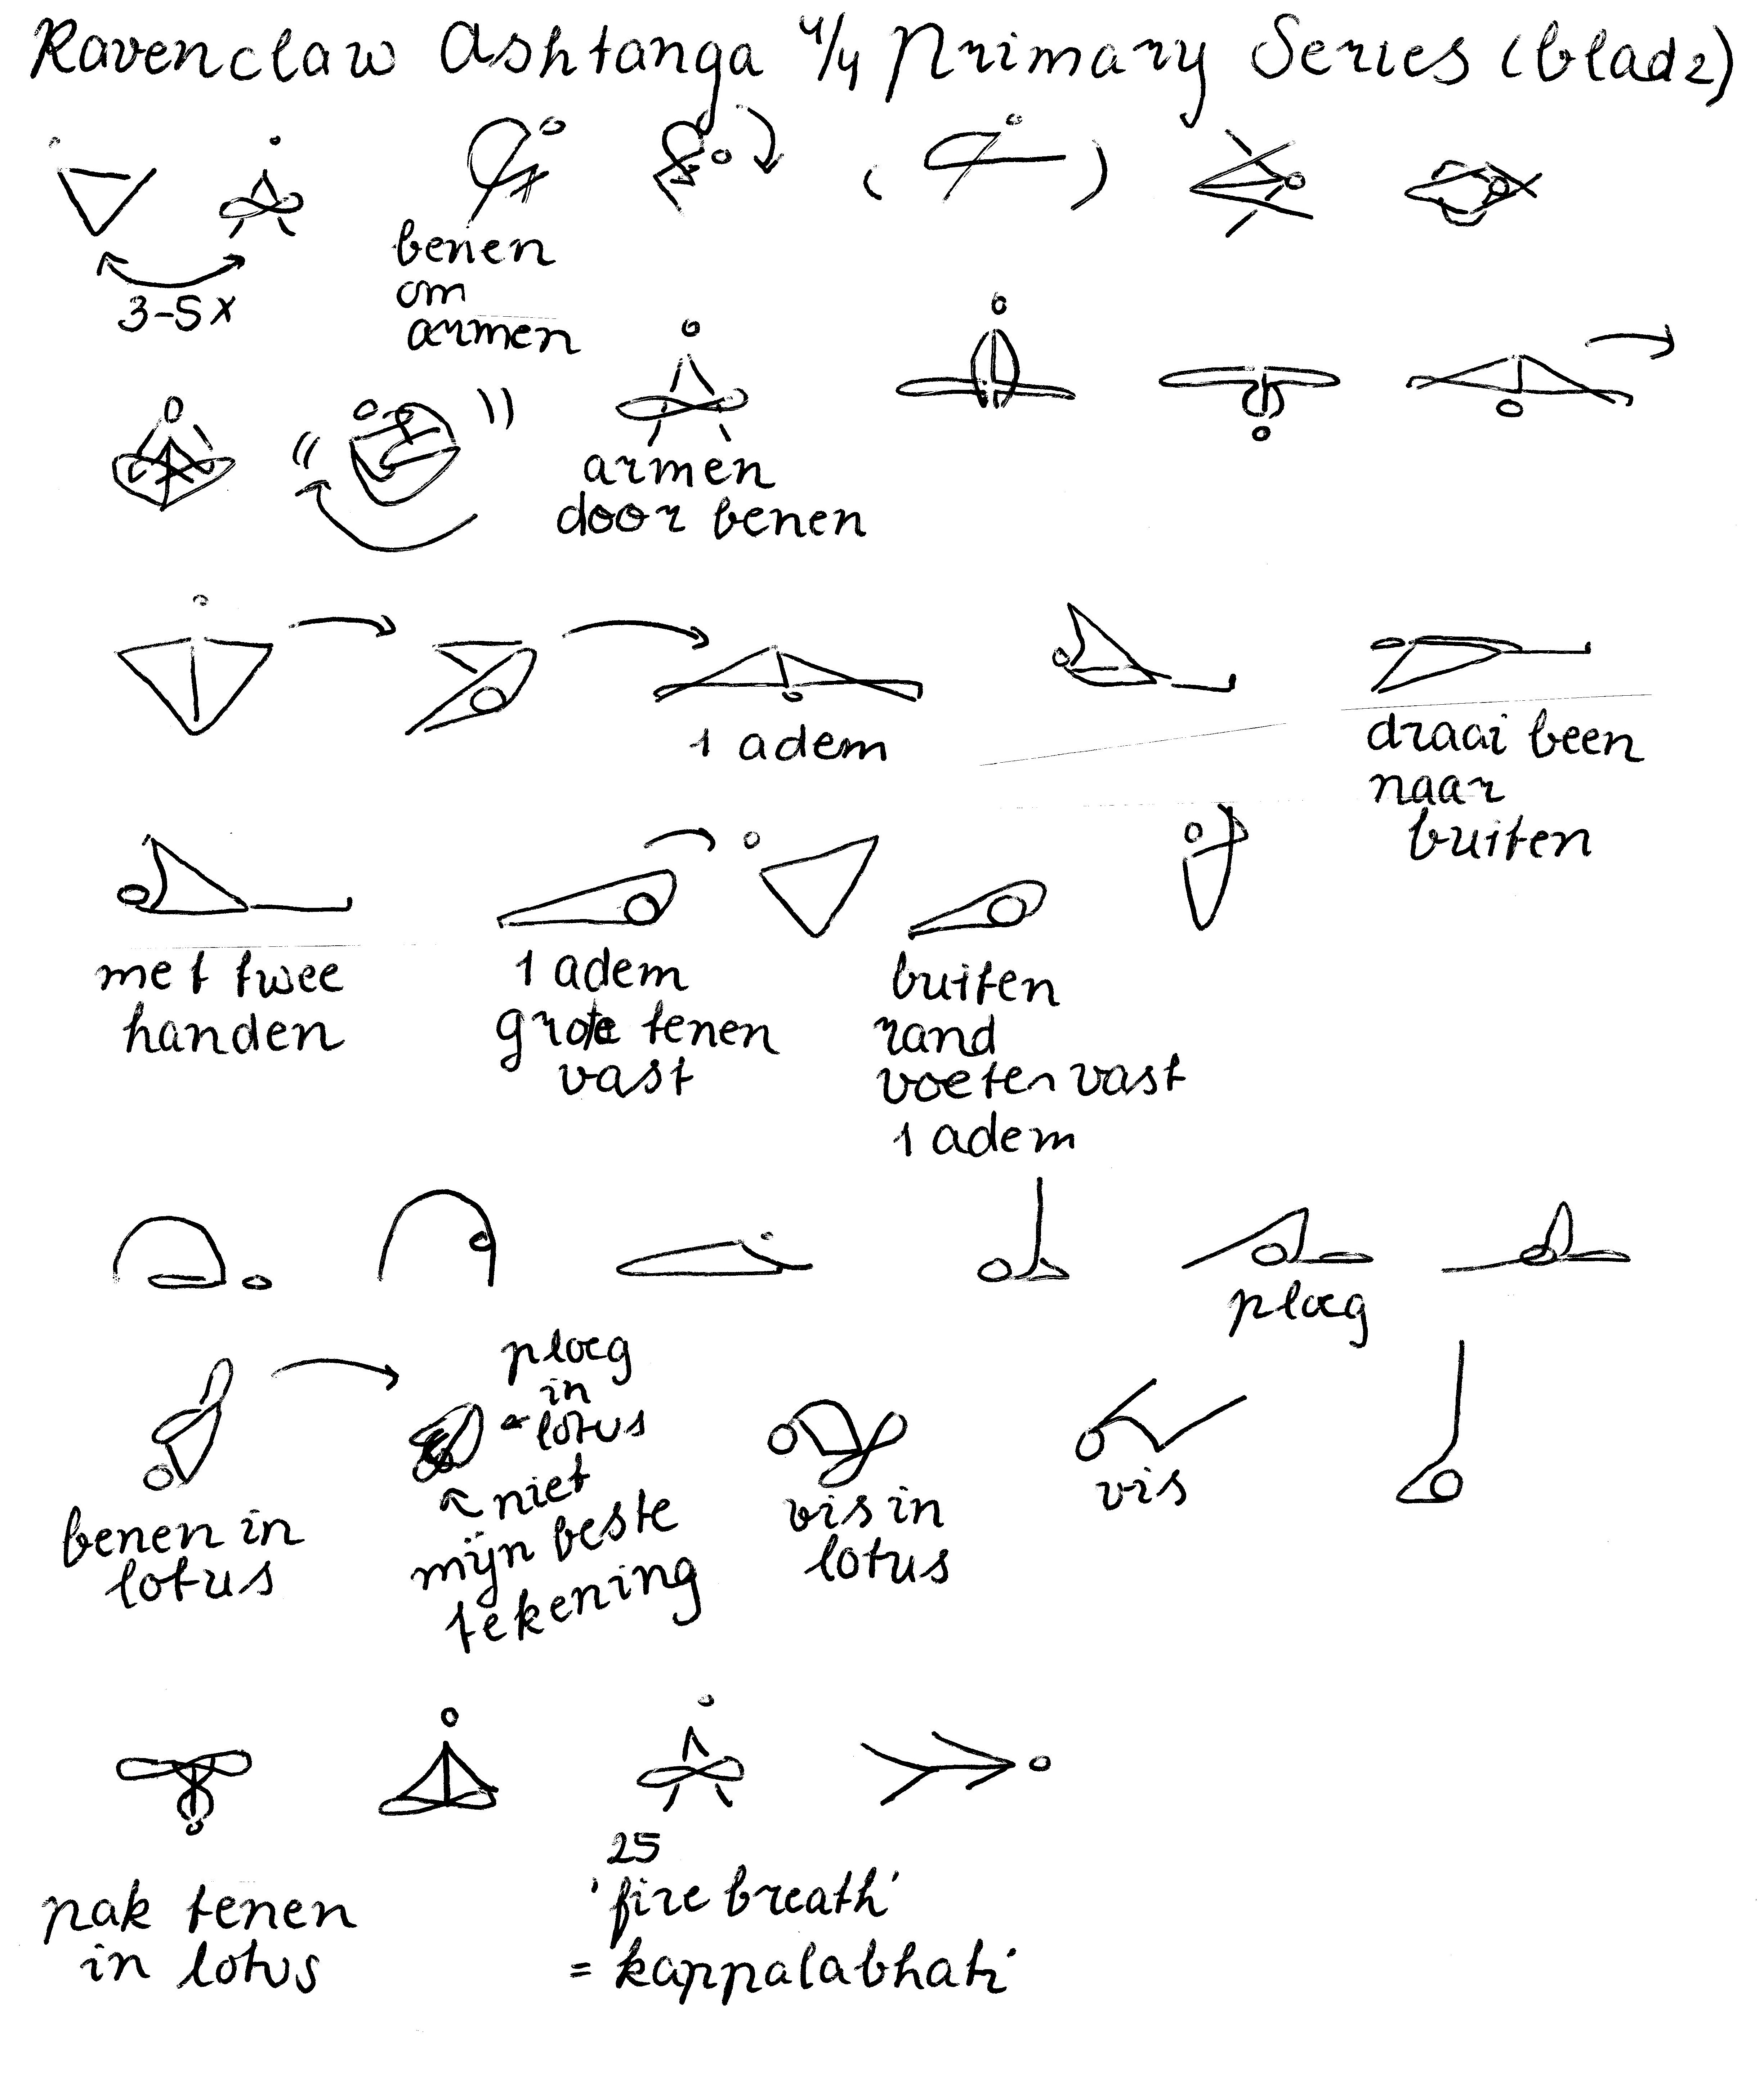 Ravenclaw Ashtanga 4/4 Primary Series (blad 2)
3-5x
benen
om
armen
armen
door benen
1 adem
draai been
naar
buiten
met twee
handen
1 adem
grote tenen
vast
buiten
rand
voeten vast
1 adem
ploeg
benen in
lotus
ploeg
in
lotus
niet
mijn beste
tekening
vis in
lotus
vis
pak tenen
in lotus
25
'fire breath'
= kappalabhati